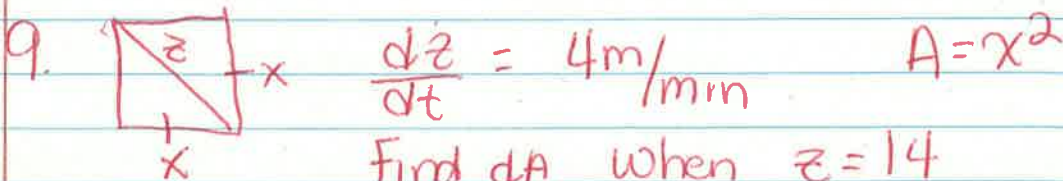 9. z x dz/dt = 4m/min A = x²
x Find dA when z = 14